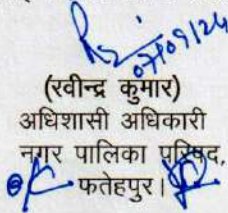 07/09/24
(रवीन्द्र कुमार)
अधिशासी अधिकारी
नगर पालिका परिषद,
फतेहपुर।